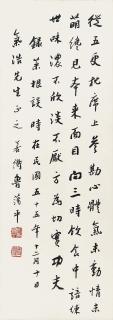 從五更枕席上參勘心體氣未動情未
萌纔見本來面目向三時飲食中諳練
世味濃不欣淡不厭方為切實功夫
錄菜根談時在民國五十五年十二月十日
氣浩先生正之 若衡魯蕩平